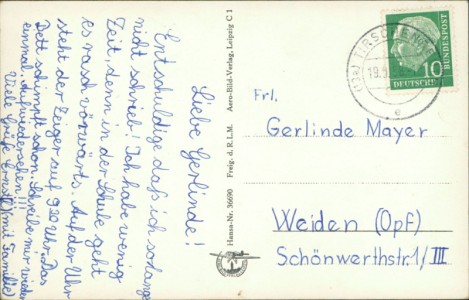 Liebe Gerlinde!
Entschuldige daß ich so lange
nicht schrieb! Ich habe wenig
Zeit, denn in der Schule geht
es rasch vorwärts. Auf der Uhr
steht der Zeiger auf 9 20 Uhr. Das
Bett schimpft schon. Schreibe mir wieder
einmal. Aufwiedersehen!!!
Viele Grüße Ernst mit Familie
Hansa-Nr. 36690 Freig. d. R.L.M. Aero-Bild-Verlag, Leipzig C 1
TIRSCHENREUTH
(13a)
19.9.
e
DEUTSCHE
BUNDESPOST
10
Frl.
Gerlinde Mayer
Weiden (Opf)
Schönwerthstr. 1/III